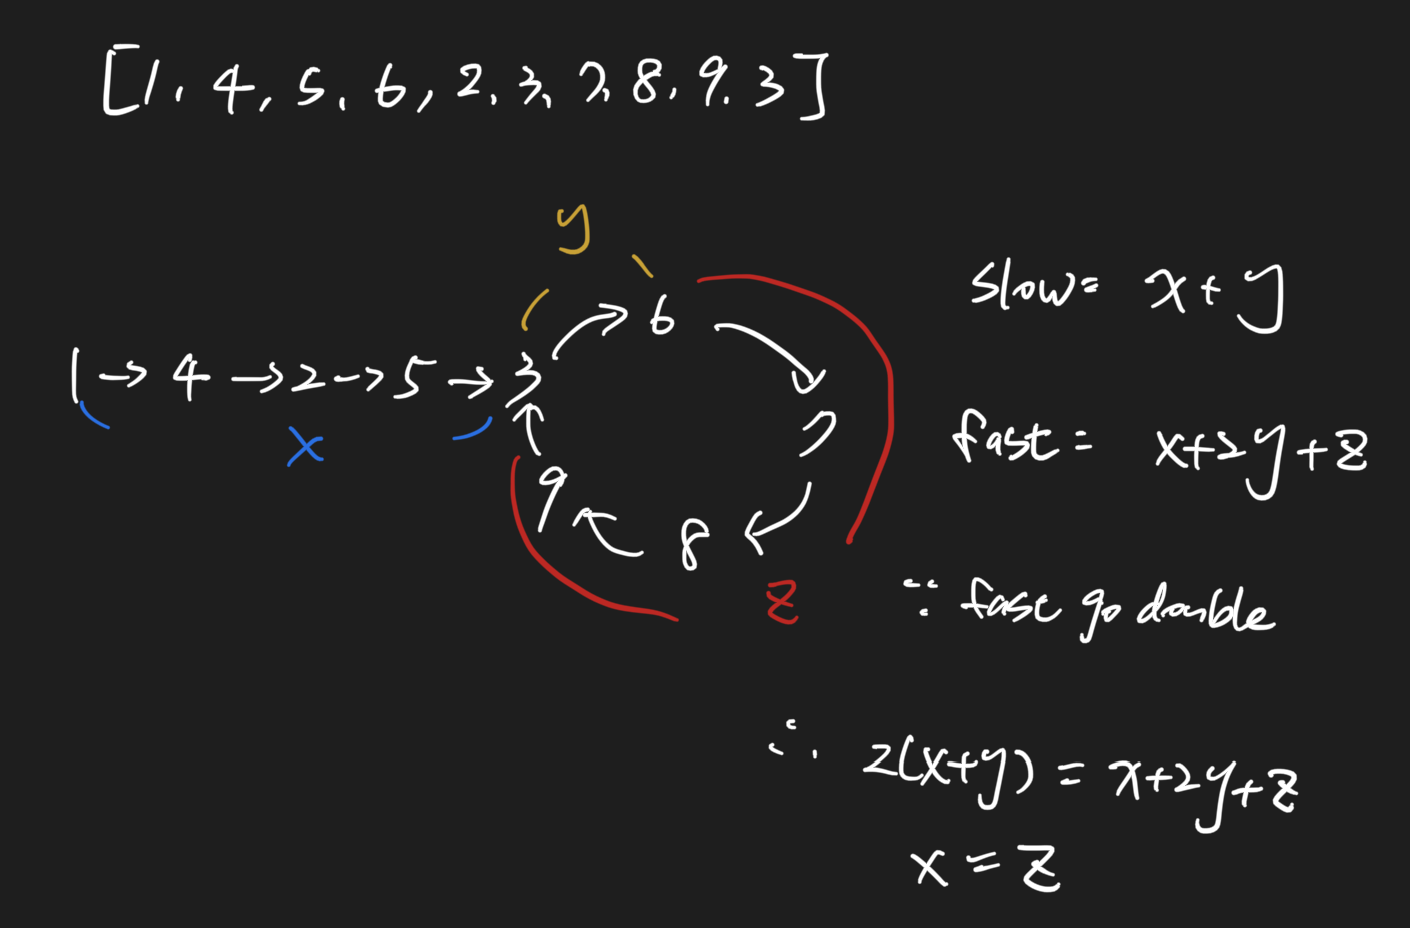 [1, 4, 5, 6, 2, 3, 7, 8, 9, 3]
y
1 → 4 → 2 → 5 → 3 → 6 → 7 → 8 → 9
x
z
slow = x + y
fast = x + 2y + z
∵ fast go double
∴ 2(x+y) = x+2y+z
x = z